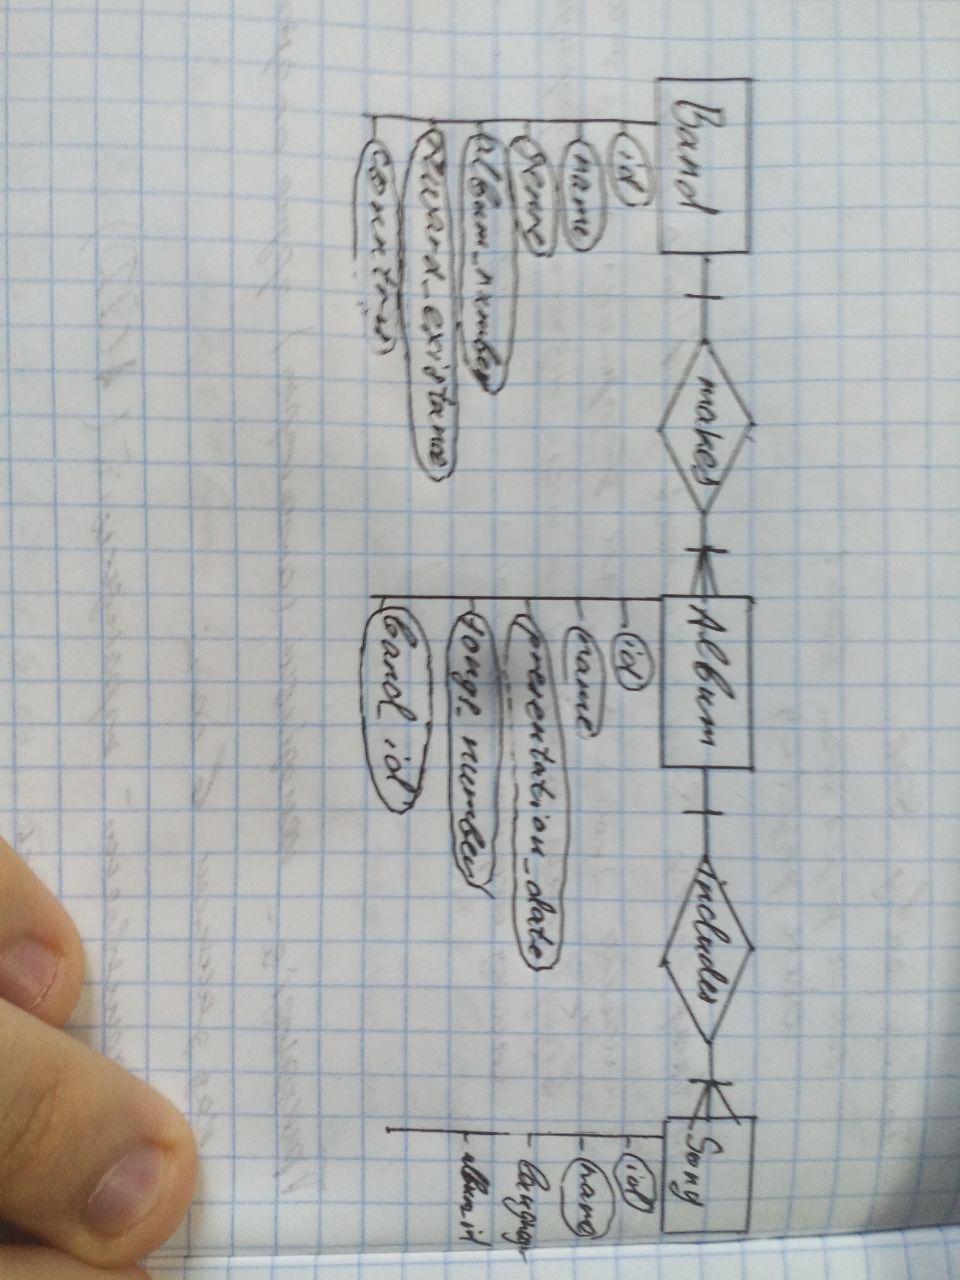 Band
id
name
genre
album_number
reward_existance
country
makes
Album
id
name
presentation_date
songs_number
band_id
includes
Song
id
name
album_id